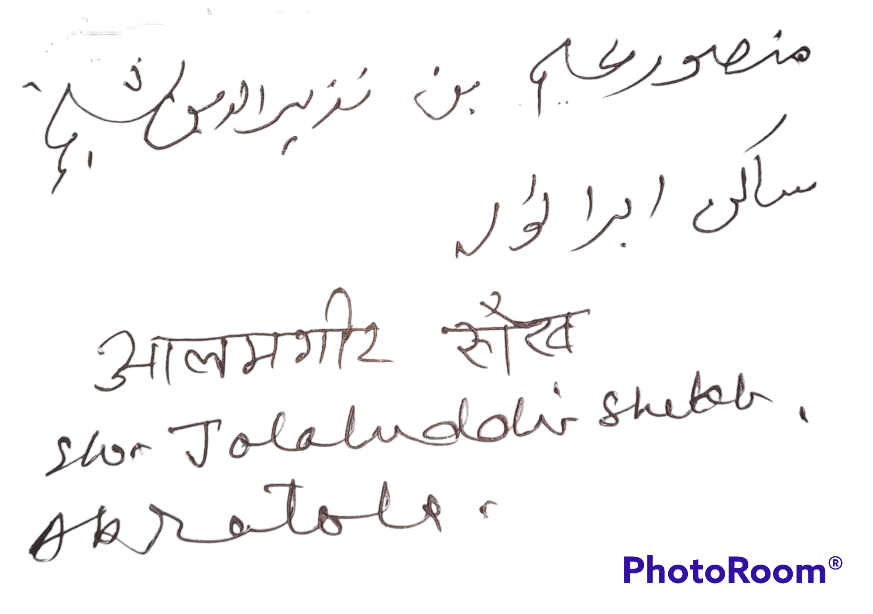 منصور علی بن نذیرالدین شیخ
ساکن ابراٹولہ
आलमगीर सेख
S/o- Jalaluddin Sheikh.
Abratola.
PhotoRoom®